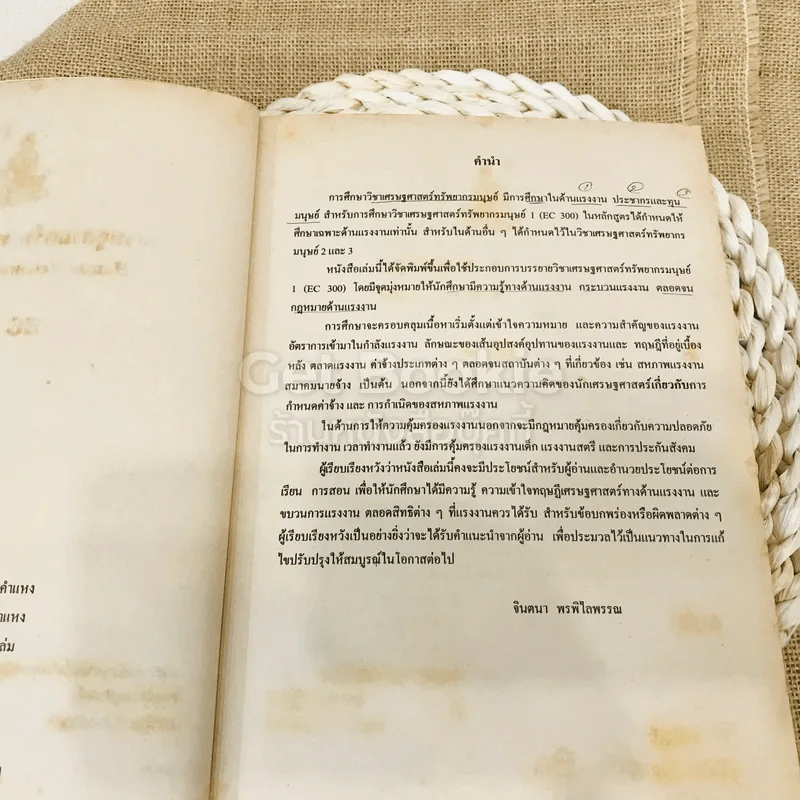 คำแหง
าแหง
ล่ม
คำนำ
① ② ③
การศึกษาวิชาเศรษฐศาสตร์ทรัพยากรมนุษย์ มีการศึกษาในด้านแรงงาน ประชากรและทุน
มนุษย์ สำหรับการศึกษาวิชาเศรษฐศาสตร์ทรัพยากรมนุษย์ 1 (EC 300) ในหลักสูตรได้กำหนดให้
ศึกษาเฉพาะด้านแรงงานเท่านั้น สำหรับในด้านอื่น ๆ ได้กำหนดไว้ในวิชาเศรษฐศาสตร์ทรัพยากร
มนุษย์ 2 และ 3
หนังสือเล่มนี้ได้จัดพิมพ์ขึ้นเพื่อใช้ประกอบการบรรยายวิชาเศรษฐศาสตร์ทรัพยากรมนุษย์
1 (EC 300) โดยมีจุดมุ่งหมายให้นักศึกษามีความรู้ทางด้านแรงงาน กระบวนแรงงาน ตลอดจน
กฎหมายด้านแรงงาน
การศึกษาจะครอบคลุมเนื้อหาเริ่มตั้งแต่เข้าใจความหมาย และความสำคัญของแรงงาน
อัตราการเข้ามาในกำลังแรงงาน ลักษณะของเส้นอุปสงค์อุปทานของแรงงานและ ทฤษฎีที่อยู่เบื้อง
หลัง ตลาดแรงงาน ค่าจ้างประเภทต่าง ๆ ตลอดจนสถาบันต่าง ๆ ที่เกี่ยวข้อง เช่น สหภาพแรงงาน
สมาคมนายจ้าง เป็นต้น นอกจากนี้ยังได้ศึกษาแนวความคิดของนักเศรษฐศาสตร์เกี่ยวกับการ
กำหนดค่าจ้าง และ การกำเนิดของสหภาพแรงงาน
ในด้านการให้ความคุ้มครองแรงงานนอกจากจะมีกฎหมายคุ้มครองเกี่ยวกับความปลอดภัย
ในการทำงาน เวลาทำงานแล้ว ยังมีการคุ้มครองแรงงานเด็ก แรงงานสตรี และการประกันสังคม
ผู้เรียบเรียงหวังว่าหนังสือเล่มนี้คงจะมีประโยชน์สำหรับผู้อ่านและอำนวยประโยชน์ต่อการ
เรียน การสอน เพื่อให้นักศึกษาได้มีความรู้ ความเข้าใจทฤษฎีเศรษฐศาสตร์ทางด้านแรงงาน และ
ขบวนการแรงงาน ตลอดสิทธิต่าง ๆ ที่แรงงานควรได้รับ สำหรับข้อบกพร่องหรือผิดพลาดต่าง ๆ
ผู้เรียบเรียงหวังเป็นอย่างยิ่งว่าจะได้รับคำแนะนำจากผู้อ่าน เพื่อประมวลไว้เป็นแนวทางในการแก้
ไขปรับปรุงให้สมบูรณ์ในโอกาสต่อไป
จินตนา พรพิไลพรรณ
Get Bookie
ร้านหนังสือบุ๊คกี้